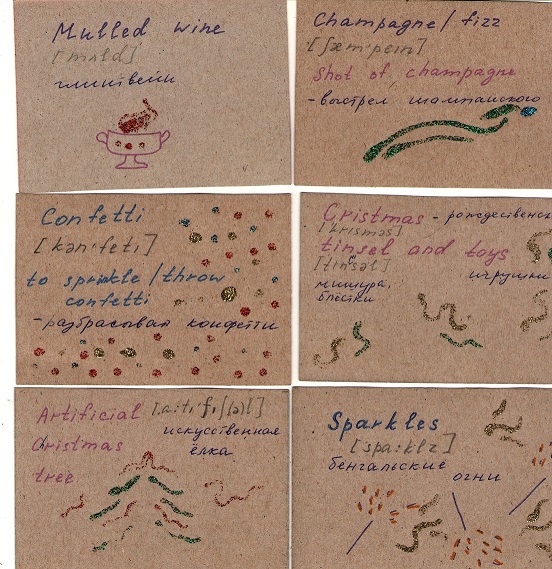 Mulled wine
[mʌld]
глинтвейн
Champagne/fizz
[ʃæm'peɪn]
Shot of champagne
- выстрел шампанского
Confetti
[kən'fetɪ]
to sprinkle/throw
confetti
- разбрасывая конфетти
Cristmas - рождественск
[krısməs]
tinsel and toys
[tın'səl] игрушки
мишура,
блёстки
Artificial [,a:tı'fı∫(ə)l]
Christmas искусственная
tree ёлка
Sparkles
[spa:klz]
бенгальские
огни